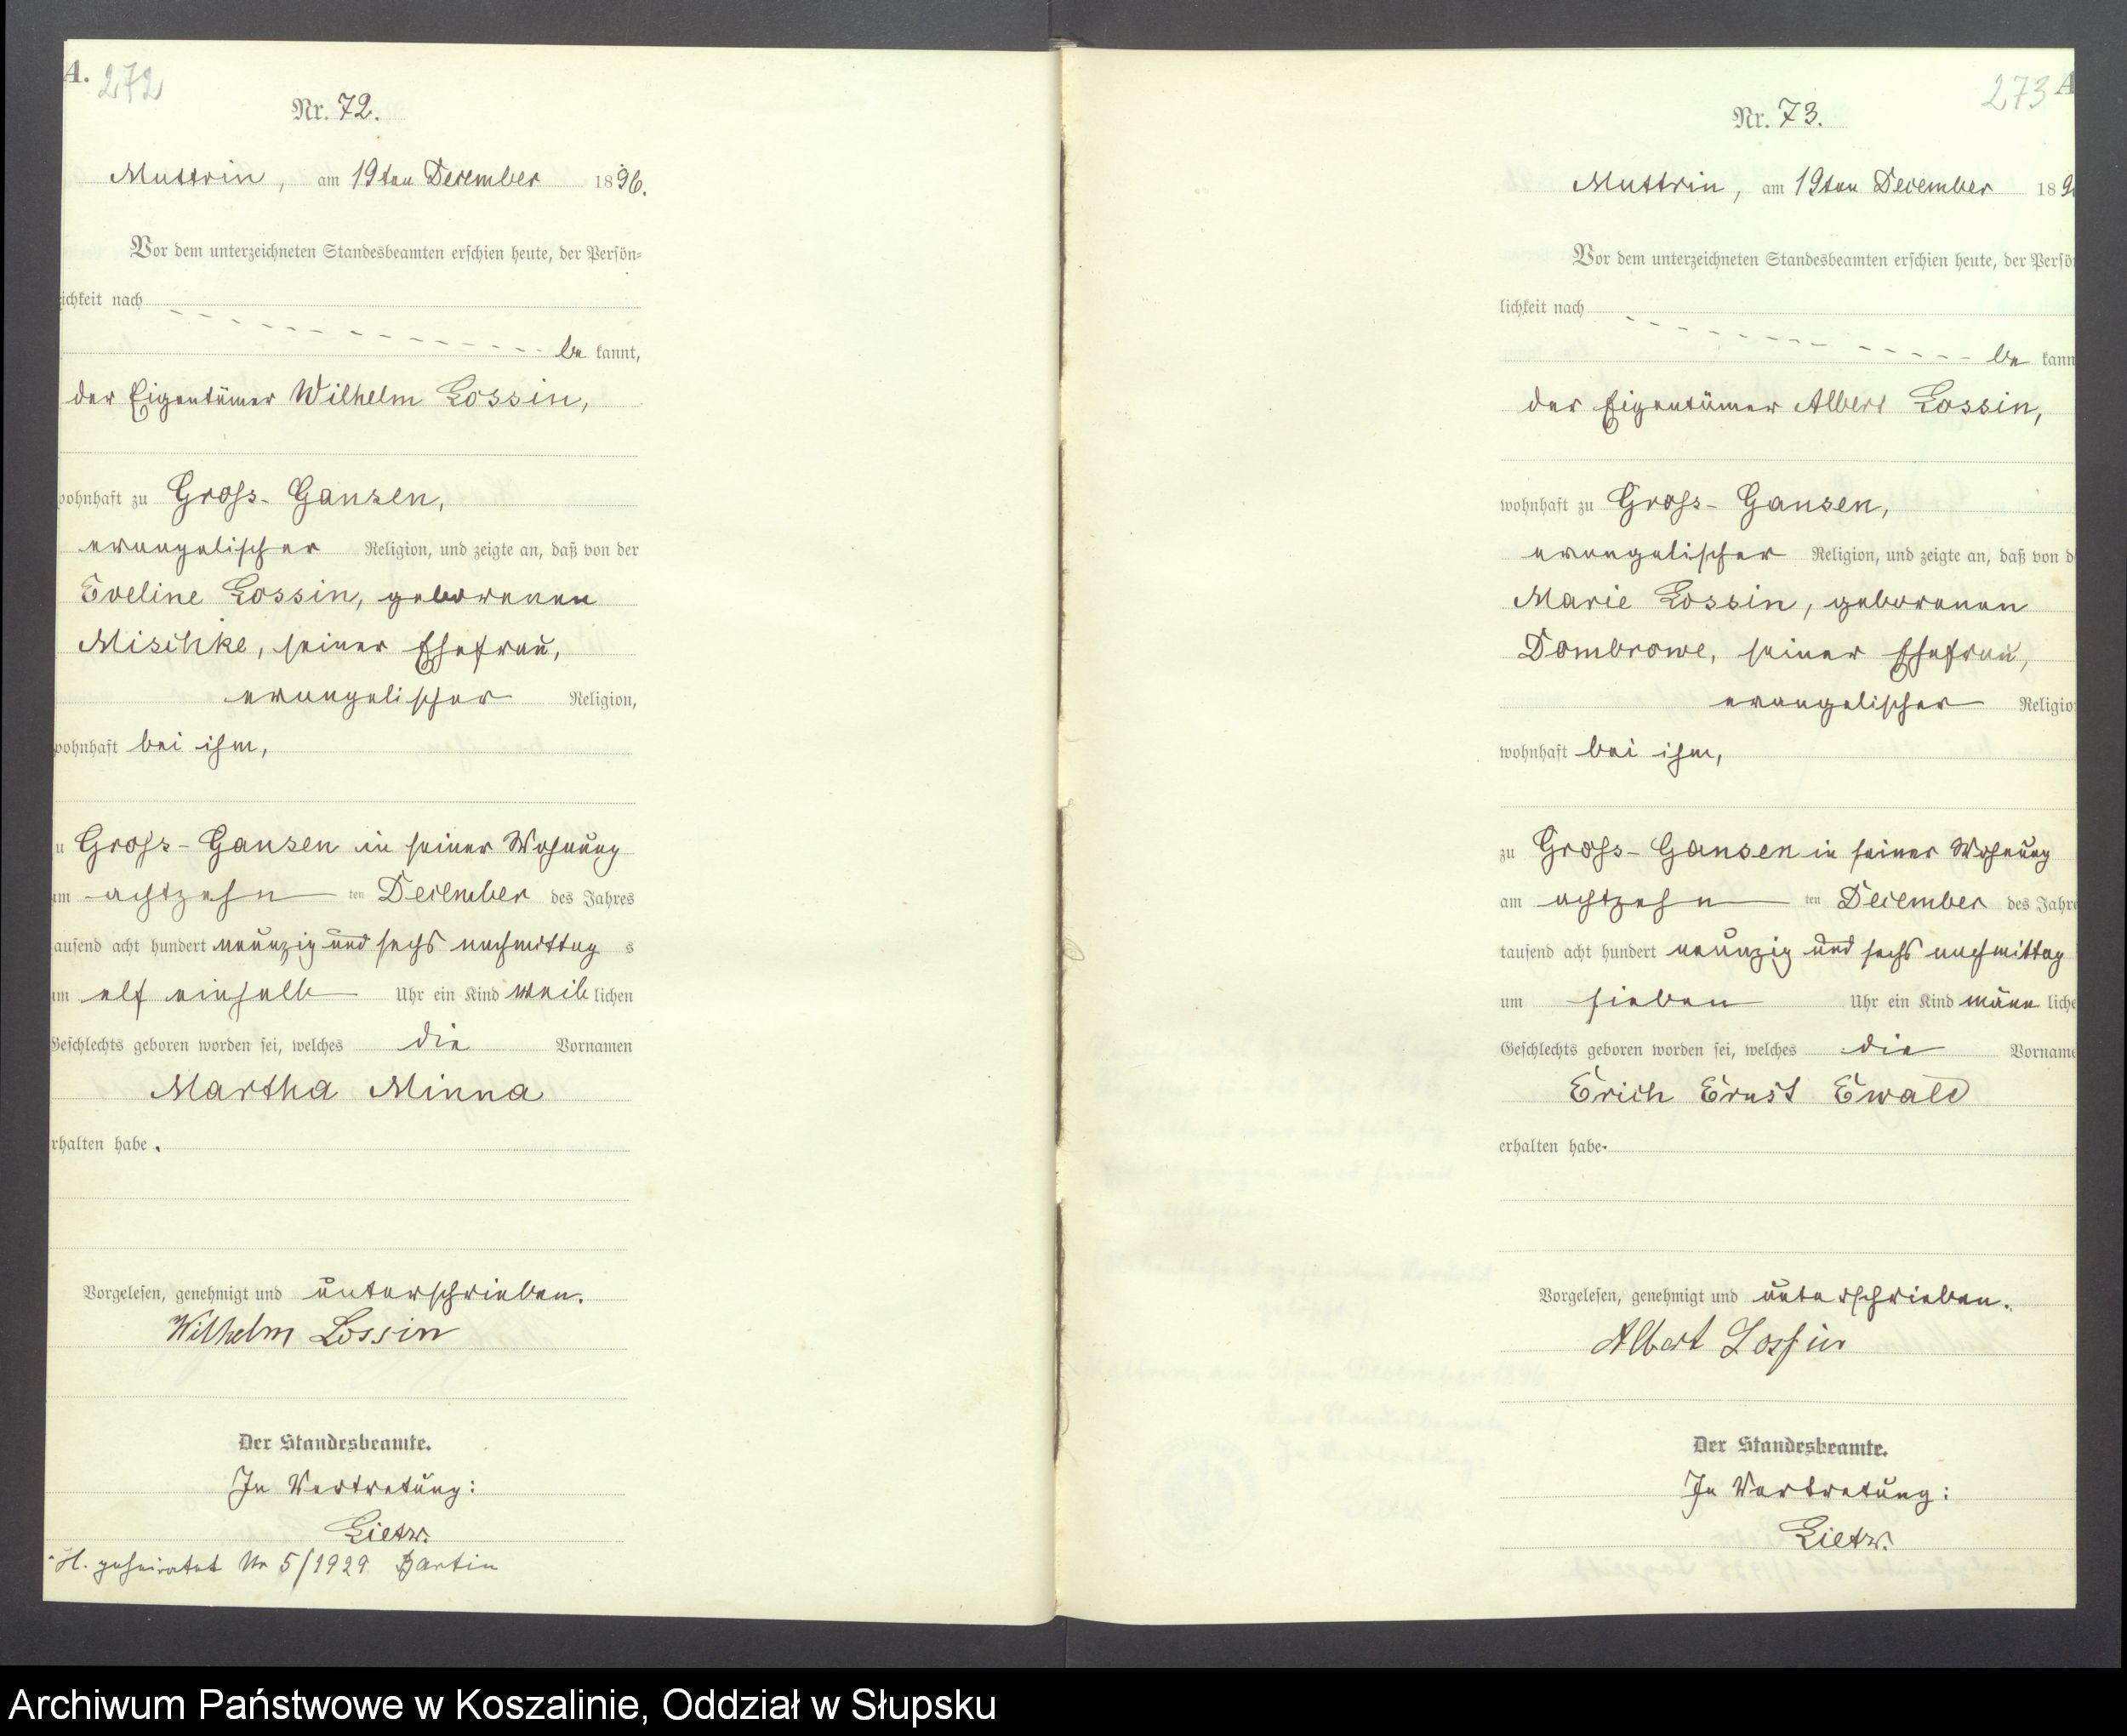 A. 272
Nr. 72.
Muttrin, am 19ten December 1896.
Vor dem unterzeichneten Standesbeamten erschien heute, der Persön-
lichkeit nach
be kannt,
der Eigentümer Wilhelm Lossin,
wohnhaft zu Gross-Gansen,
evangelischer Religion, und zeigte an, daß von der
Eveline Lossin, geborenen
Mischke, seiner Ehefrau,
evangelischer Religion,
wohnhaft bei ihm,
zu Gross-Gansen in seiner Wohnung
am achtzehn ten December des Jahres
tausend acht hundert neunzig und sechs nachmittag s
um elf einhalb Uhr ein Kind weib lichen
Geschlechts geboren worden sei, welches die Vornamen
Martha Minna
erhalten habe.
Vorgelesen, genehmigt und unterschrieben.
Wilhelm Lossin
Der Standesbeamte.
In Vertretung:
Lietz.
H. geheiratet Nr 5/1929 Bartin
273 A
Nr. 73.
Muttrin, am 19ten December 189
Vor dem unterzeichneten Standesbeamten erschien heute, der Persö
lichkeit nach
be kann
der Eigentümer Albert Lossin,
wohnhaft zu Gross-Gansen,
evangelischer Religion, und zeigte an, daß von d
Marie Lossin, geborenen
Dombrowe, seiner Ehefrau,
evangelischer Religio
wohnhaft bei ihm,
zu Gross-Gansen in seiner Wohnung
am achtzehn ten December des Jahre
tausend acht hundert neunzig und sechs nachmittag
um sieben Uhr ein Kind männ liche
Geschlechts geboren worden sei, welches die Vorname
Erich Ernst Ewald
erhalten habe.
Vorgelesen, genehmigt und unterschrieben.
Albert Lossin
Der Standesbeamte.
In Vertretung:
Lietz.
Archiwum Państwowe w Koszalinie, Oddział w Słupsku